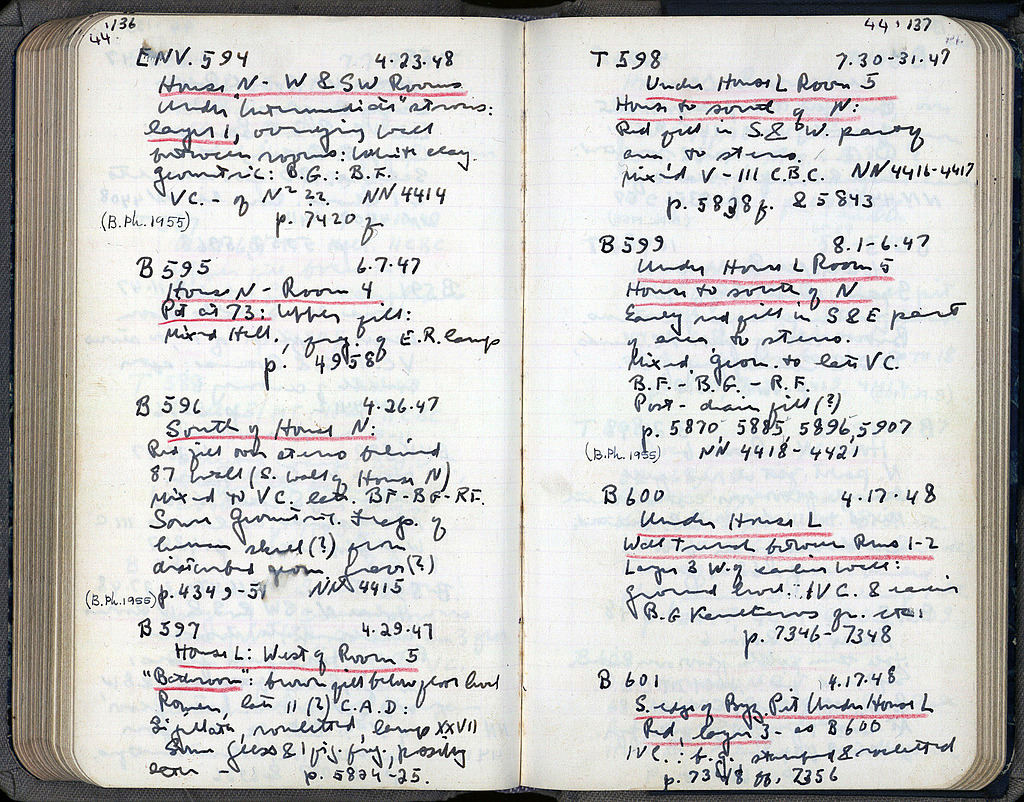 44:136
ENV. 594 4.23.48
House N - W & SW Rooms
Under "Intermediate" stereo:
layer 1, overlying wall
between rooms: White clay.
Geometric: B.G.: B.F.
VC. - of N² ?? NN 4414
(B.Ph. 1955) p. 7420
B 595 6.7.47
House N - Room 4
Pot at 73: Upper fill:
Mixed Hell., frg. of E.R. lamp
p. 4958
B 596 4.26.47
South of House N:
Red fill over stereo behind
87 wall (S. wall of House N)
Mixed to VC. late. BF - BG - RF.
Some Geometric. Frags. of
human skull (?) from
disturbed geom. grave (?)
(B.Ph. 1955) p. 4349-51 NN 4415
B 597 4.29.47
House L: West of Room 5
"Bathroom": brown fill below floor level
Roman, late II (?) C.A.D:
Sigillata, rouletted, lamp XXVII
Some glass & 1 fig. frg., possibly
later - p. 5824-25.
44:137
T 598 7.30-31.47
Under House L Room 5
House to south of N:
Red fill in S. & W. part of
area, to stereo.
Mixed V - III C.B.C. NN 4416-4417
p. 5838 f. & 5843
B 599 8.1-6.47
Under House L Room 5
House to south of N
Early red fill in S & E part
of area to stereo.
Mixed, Geom. to late VC.
B.F. - B.G. - R.F.
Post - drain fill (?)
p. 5870, 5885, 5896, 5907
(B.Ph. 1955) NN 4418 - 4421
B 600 4.17.48
Under House L
Wall Trench between Rms 1-2
Layer 3 W. of earlier wall:
ground level: IVC. & earlier
B.G Kantharos fr. etc.
p. 7346 - 7348
B 601 4.17.48
S. edge of Byz. Pit Under House L
Red, layer 3 - as B 600
IVC.: b.g. stamped & rouletted
p. 7348 7356